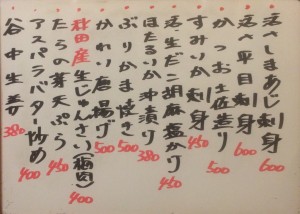 活〆しまあじ刺身 600
活〆平目刺身 600
かつお土佐造り 500
すみいか刺身 450
活生だこ胡麻塩かり 450
ほたるいか沖漬り 380
ぶりかま焼き 500
かわり唐揚げ 500
秋田産生じゅんさい(梅肉) 400
たらの芽天ぷら 450
アスパラバター炒め 400
谷中生姜 380